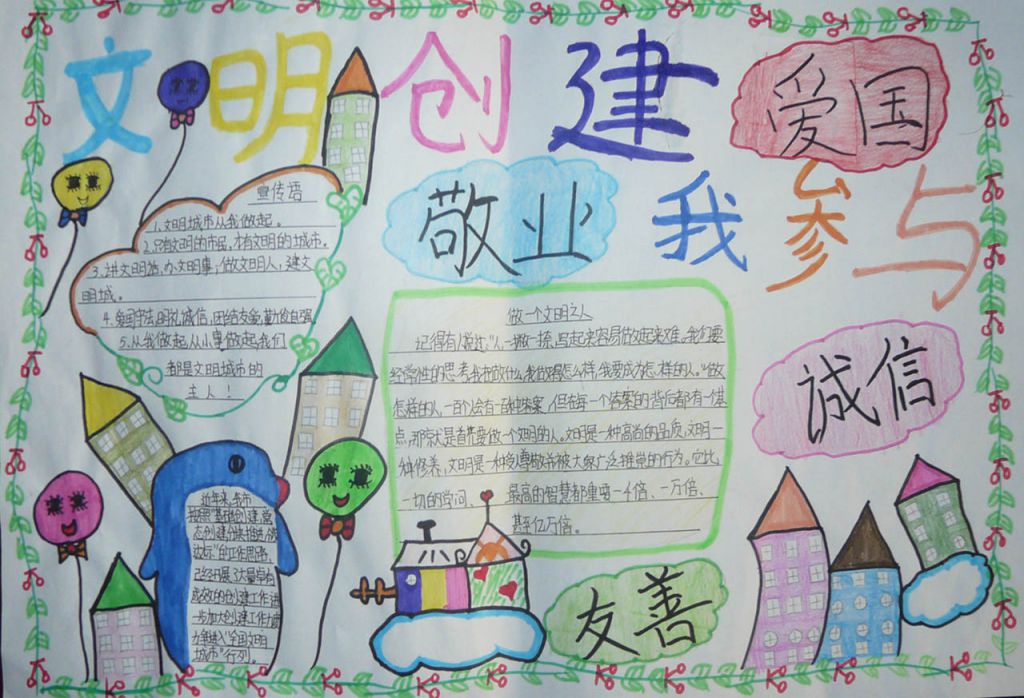 文明创建
我参与
爱国
敬业
诚信
友善
宣传语
1.文明城市从我做起。
2.只有文明的市民，才有文明的城市。
3.讲文明话，办文明事，做文明人，建文
明城。
4.爱国守法，明礼诚信，团结友爱，勤俭自强
5.从我做起，从小事做起，我们
都是文明城市的
主人！
做一个文明之人
记得有人说过："人，一撇一捺，写起来容易做起来难。我们要
经常性的思考，我在做什么，我做得怎么样，我要成为怎样的人。"做
怎样的人，一百个人会有一百种答案，但在每一个答案的背后都有一基
点，那就是首先要做一个文明的人。文明是一种高尚的品质，文明一
种修养，文明是一种受尊敬并被大家广泛推崇的行为。它比
一切的学问、最高的智慧都重要一千倍、一万倍、
甚至亿万倍。
近年来，我市
按照"基础创建，常
态创建，分块推进，
达标"的工作思路，
已经开展了大量卓有
成效的创建工作，进
一步加大创建工作力度
力争进入"全国文明
城市"行列。